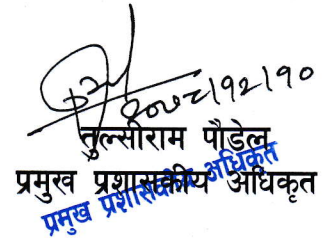 २०७८/१२/१०
तुल्सीराम पौडेल
प्रमुख प्रशासकीय अधिकृत
प्रमुख प्रशासकीय अधिकृत